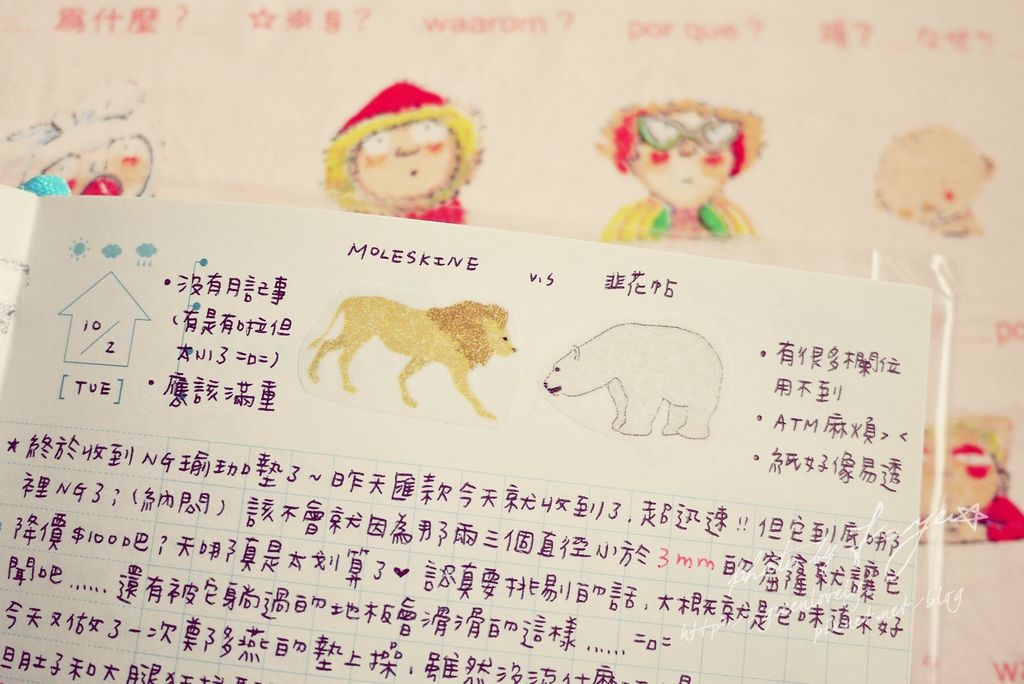 為什麼？ ☆來自？ waarom？ por que？ なぜ？
MOLESKINE v.s 韭花帖
10/2
[TUE]
•沒有月記事
(有是有啦但
太小了=口=)
•應該滿重
•有很多欄位
用不到
•ATM麻煩><
•紙好像易透
★終於收到NG瑜珈墊了～昨天匯款今天就收到了,超迅速!!但它到底哪
裡NG了?(納悶) 該不會就因為那兩三個直徑小於3mm的窟窿就讓它
降價$100吧?天哪真是太划算了♥ 認真要挑剔的話,大概就是它味道不好
聞吧......還有被它躺過的地板會滑滑的這樣......=口=
今天又做了一次鄭多燕的墊上操,雖然沒流什麼
肚子和大腿
photo by